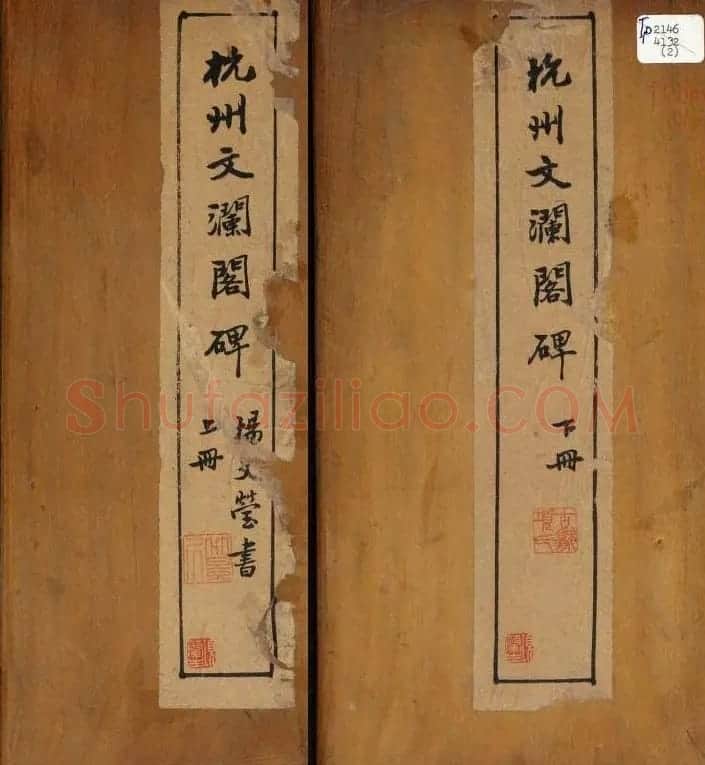 杭州文瀾閣碑
楊文瑩書
上冊
杭州文瀾閣碑
下冊
TP 2146
4132
(2)
Shufaziliao.COM